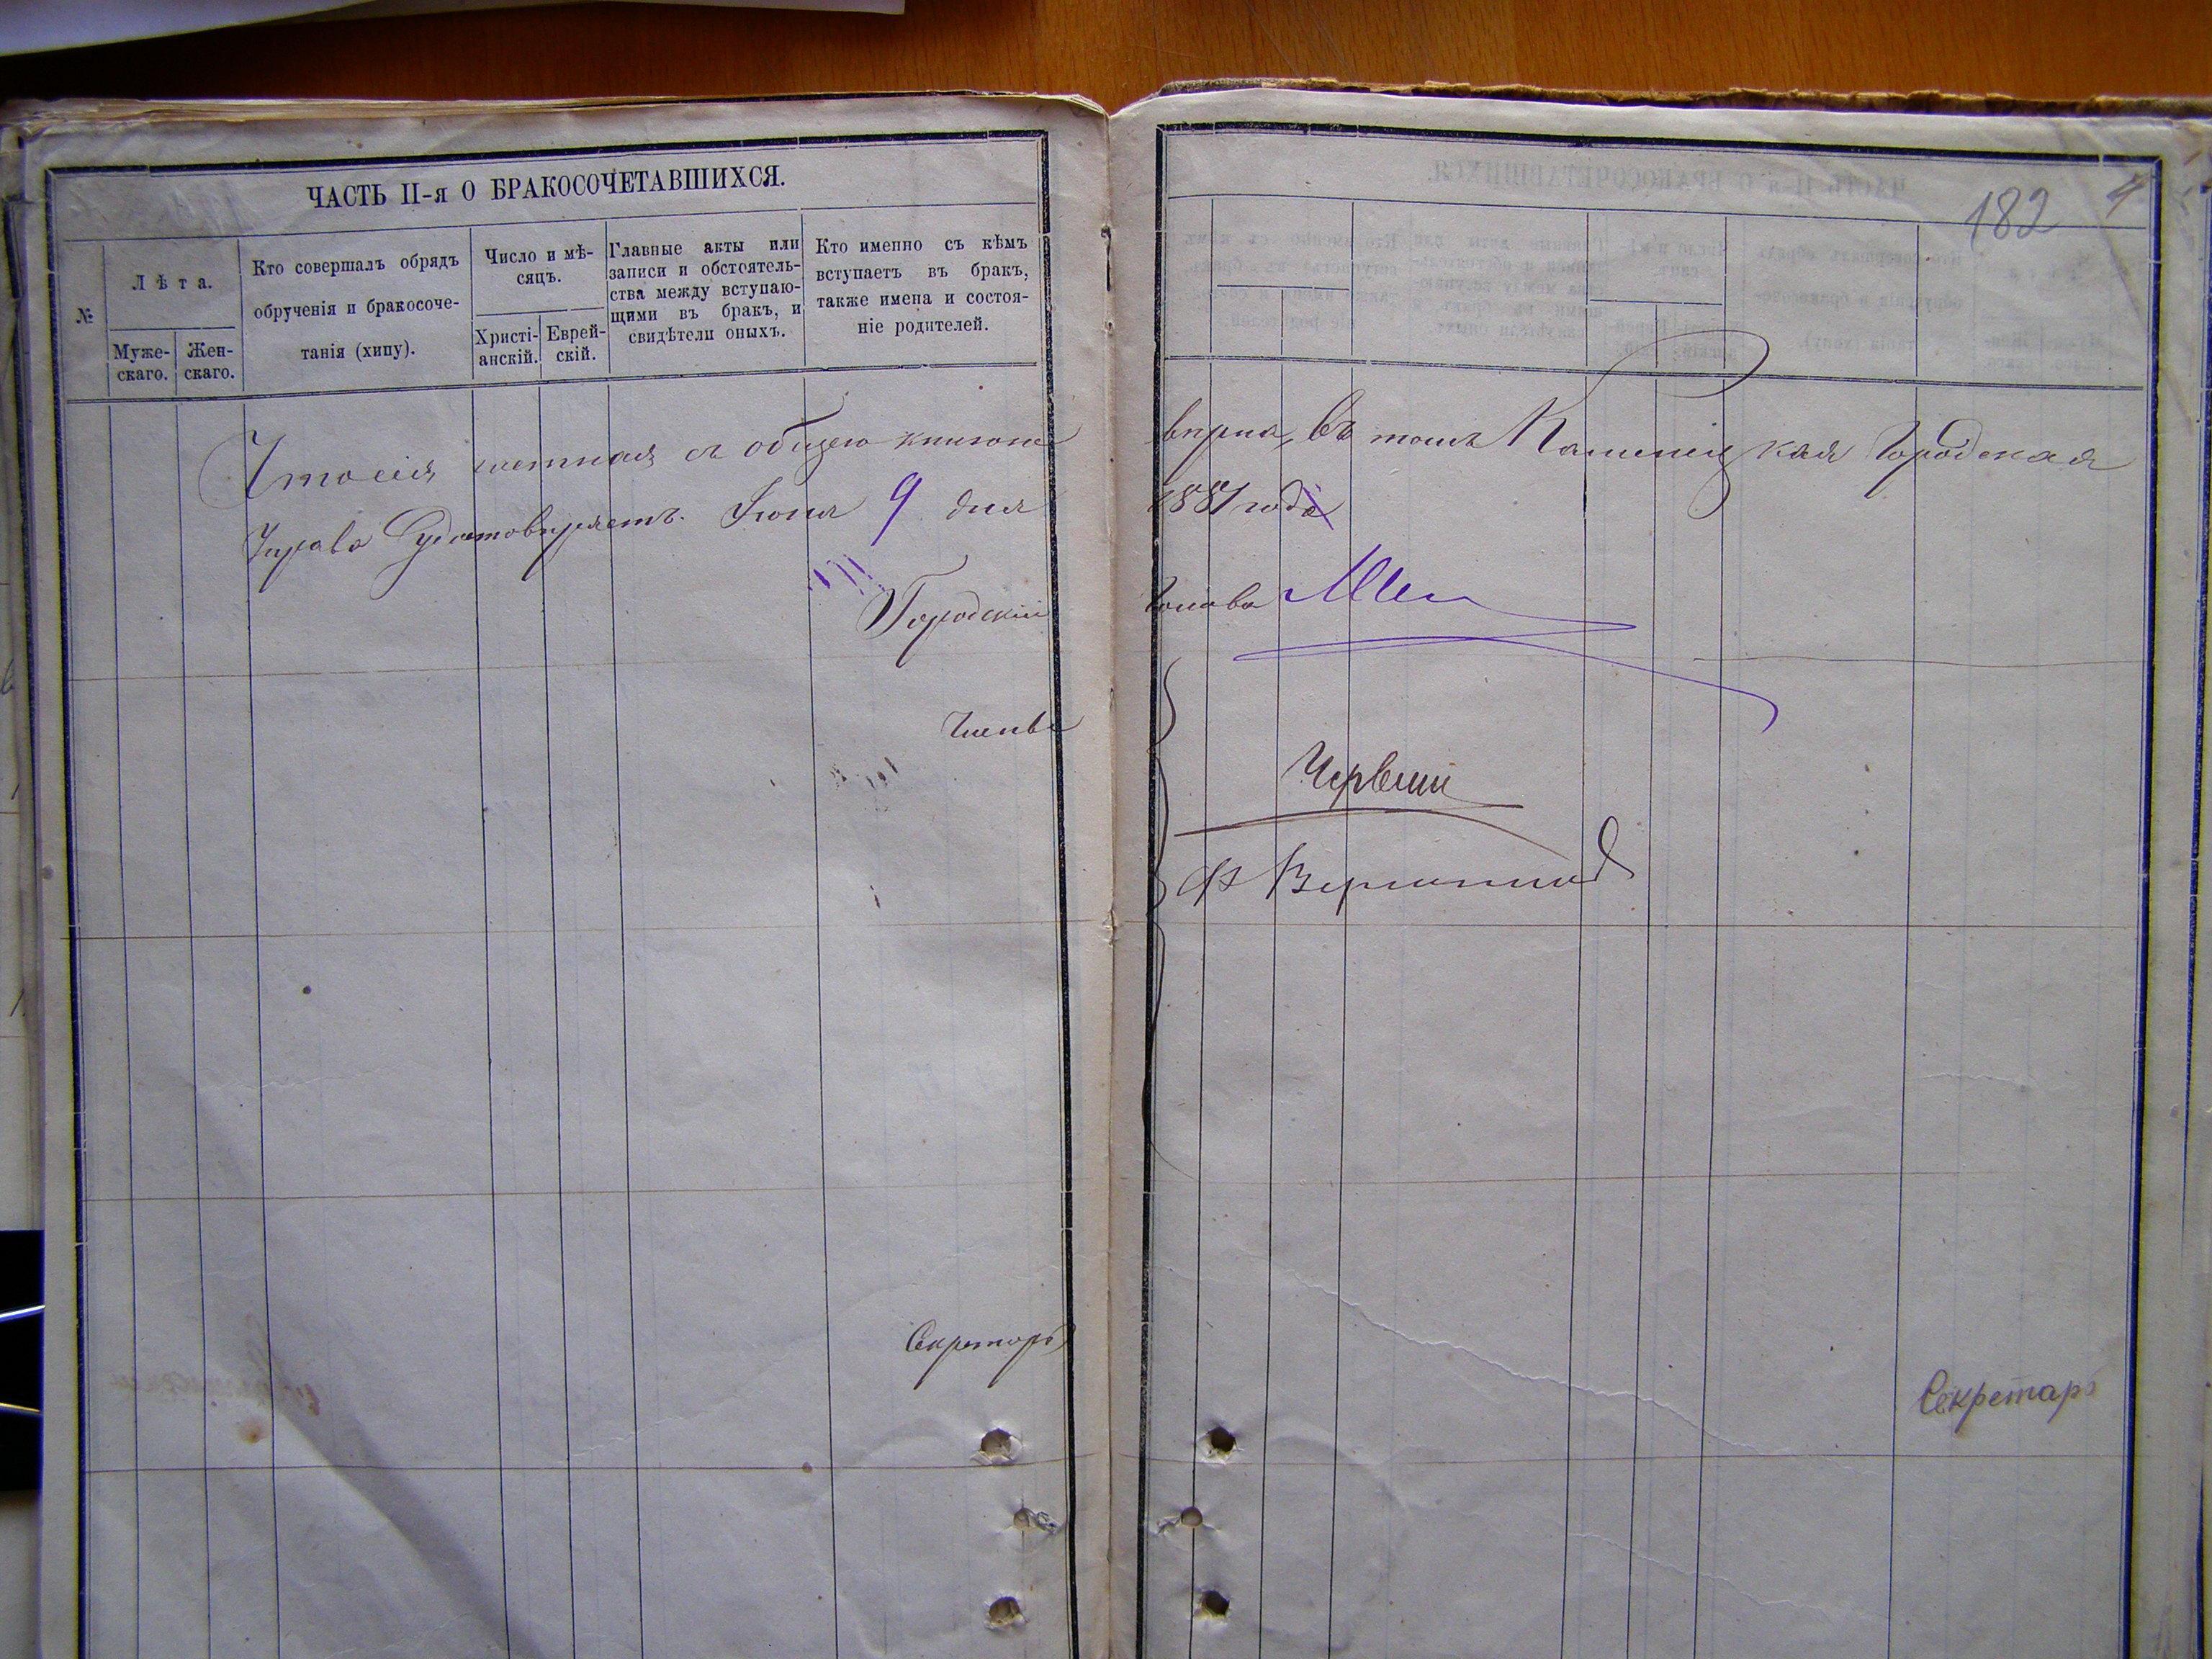 ЧАСТЬ II-я О БРАКОСОЧЕТАВШИХСЯ.
№
Лѣта.
Муже-
скаго.
Жен-
скаго.
Кто совершалъ обрядъ
обрученія и бракосоче-
танія (хипу).
Число и мѣ-
сяцъ.
Христі-
анскій.
Еврей-
скій.
Главные акты или
записи и обстоятель-
ства между вступаю-
щими въ бракъ, и
свидѣтели оныхъ.
Кто именно съ кѣмъ
вступаетъ въ бракъ,
также имена и состоя-
ніе родителей.
182
Что сія съ общею книгою вѣрна, въ томъ Каменецкая Городская
Управа Удостовѣряетъ. Іюня 9 дня 1881 года
Городскій Голова
Члены
Секретарь
Секретарь